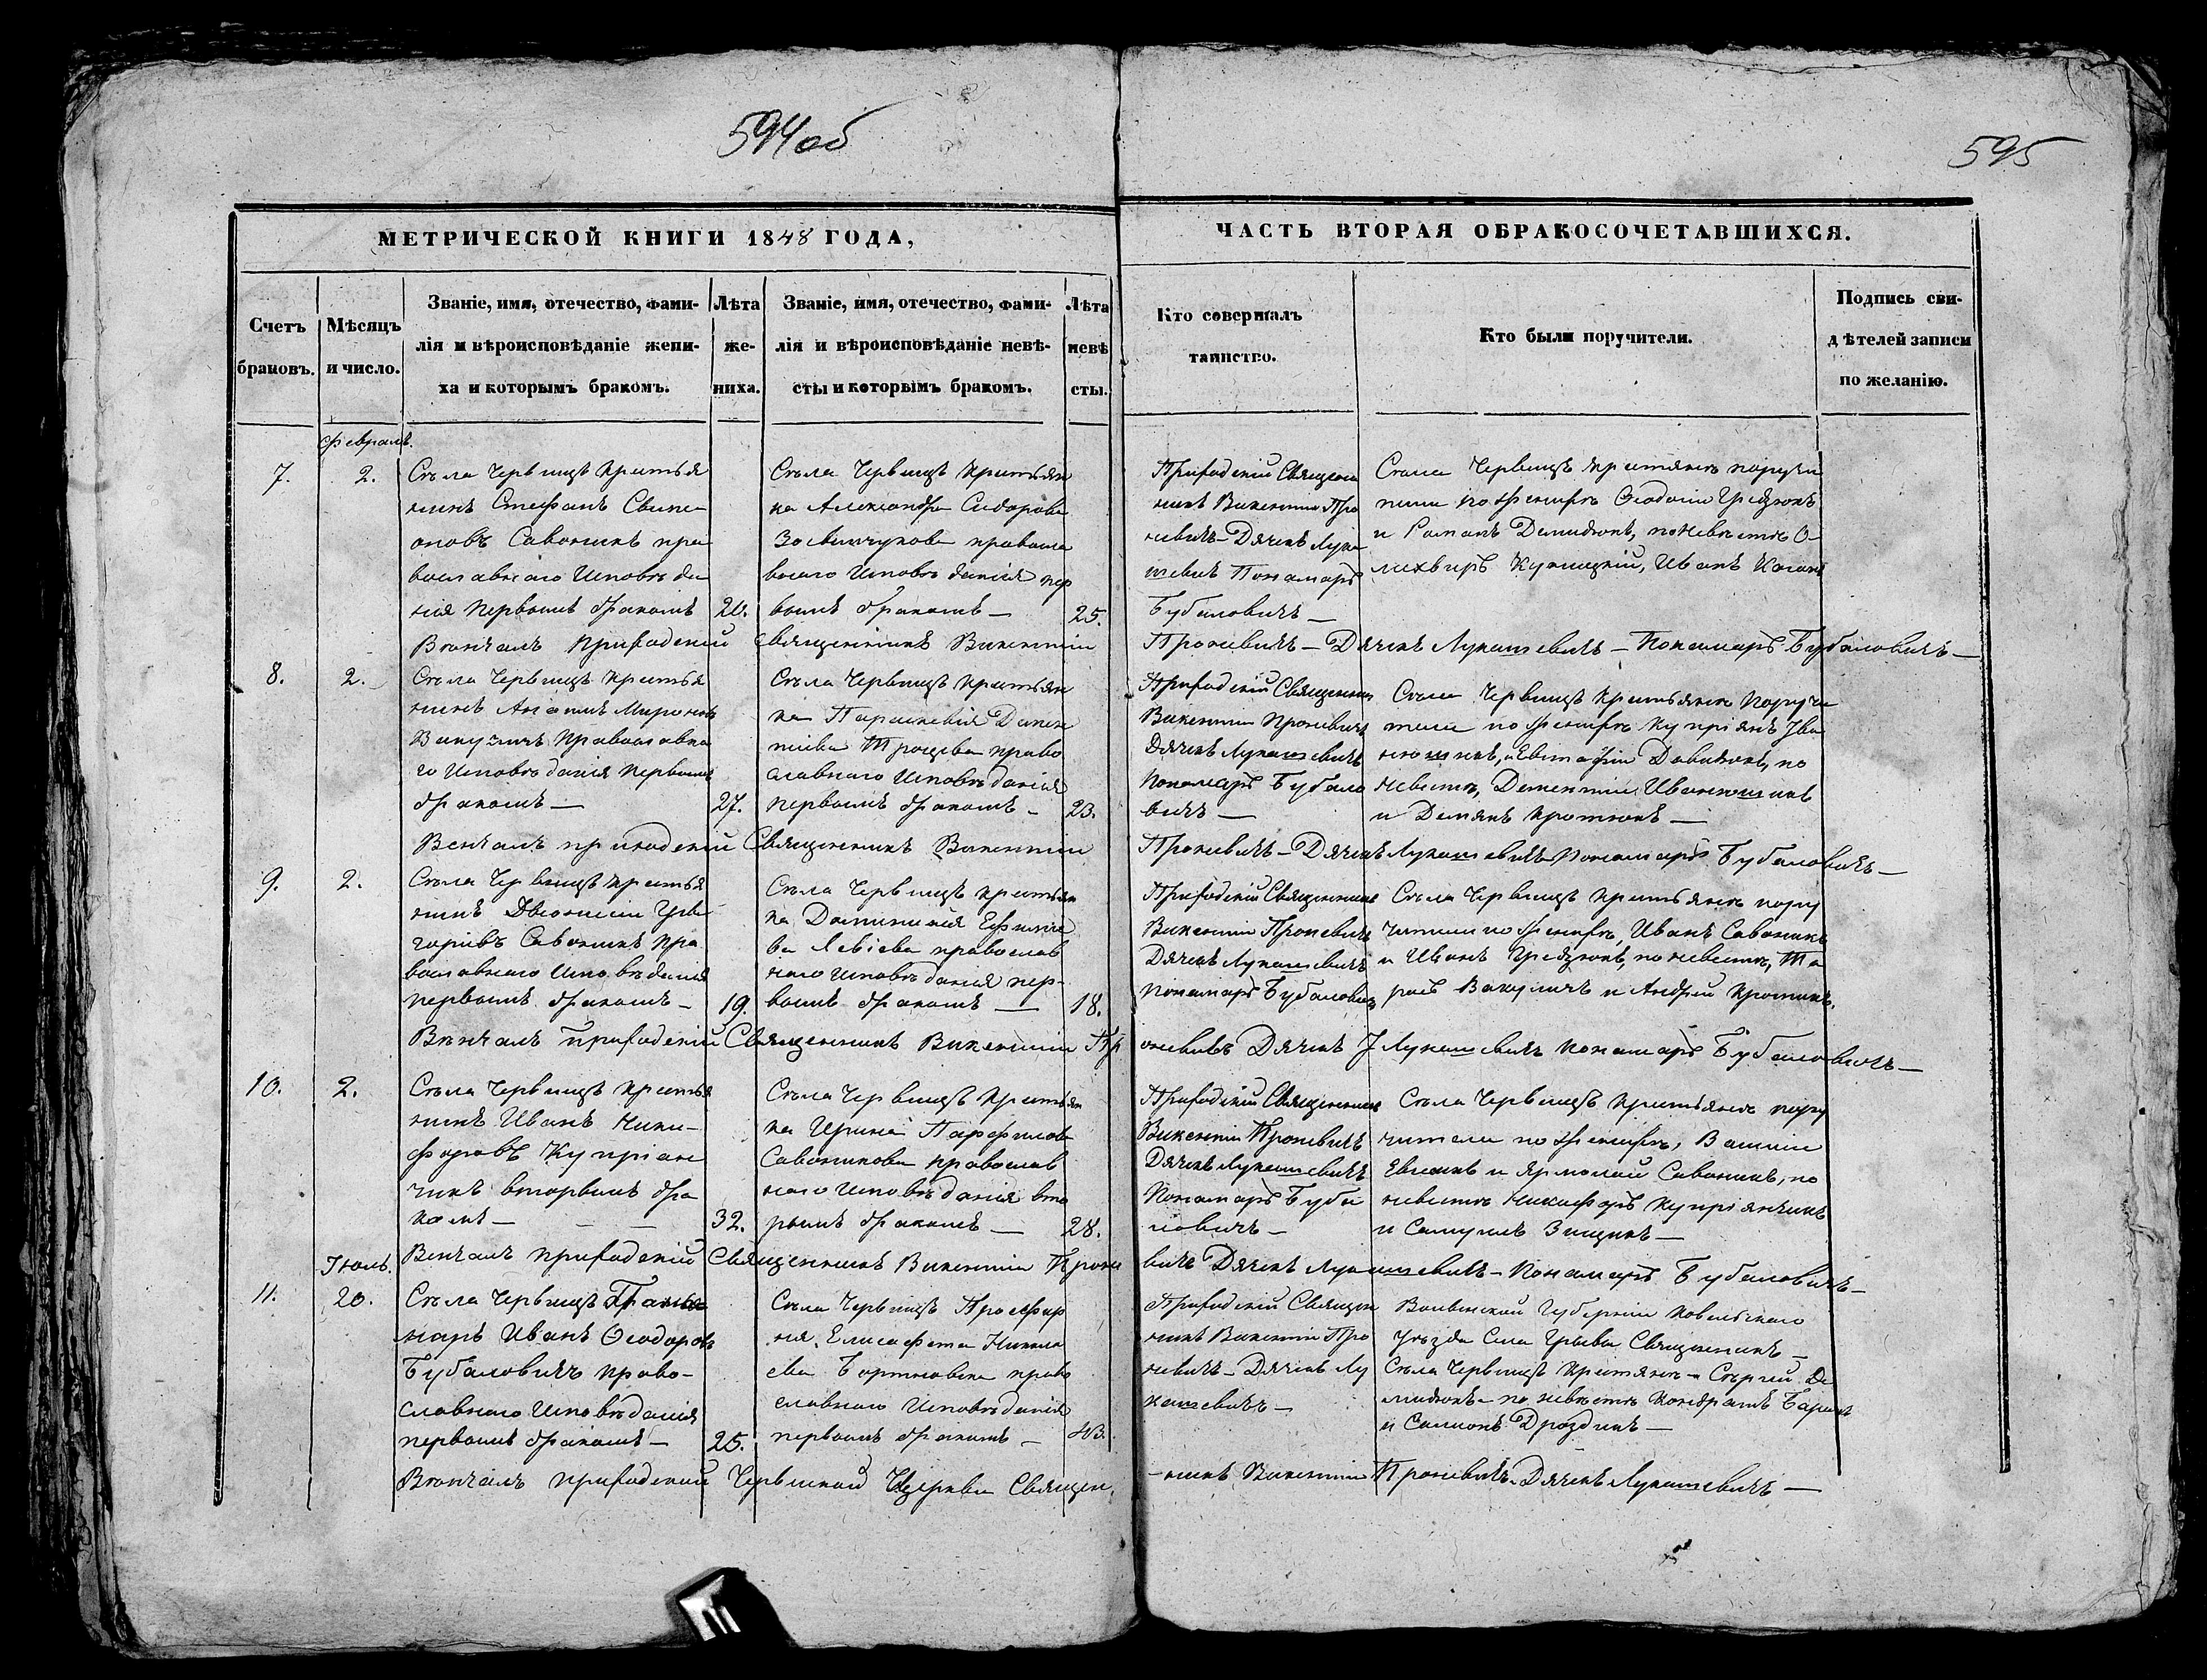 594об
595
МЕТРИЧЕСКОЙ КНИГИ 1848 ГОДА,
ЧАСТЬ ВТОРАЯ ОБРАКОСОЧЕТАВШИХСЯ.
Счетъ
браковъ.
Мѣсяцъ
и число.
Званіе, имя, отечество, фами-
лія и вѣроисповѣданіе жени-
ха и которымъ бракомъ.
Лѣта
же-
ниха.
Званіе, имя, отечество, фами-
лія и вѣроисповѣданіе невѣ-
сты и которымъ бракомъ.
Лѣта
невѣ
сты.
Кто совершалъ
таинство.
Кто были поручители.
Подпись сви-
дѣтелей записи
по желанію.
Февраль.
7.
2.
Съла Червищъ Кристья
нинъ Стефанъ
Савоникъ пра
вославнаго Исповѣда
нія Первымъ бракомъ
20.
Съла Червищъ Кристьян
ка Александра Сидорова
православ
наго Исповѣданія пер
вымъ бракомъ —
25.
Приходскій Священ
никъ Викентій Про
невичъ Дячекъ Лука
шевичъ Пономаръ
Бубаловичъ —
Съла Червищъ поручи
тели по Женихѣ Феодосій
и Романъ Демидюкъ, по Невѣстѣ О-
Куницкій, Иванъ
Вѣнчалъ Приходскій Священникъ Викентій
Проневичъ — Дячекъ Лукашевичъ — Пономаръ Бубаловичъ —
8.
2.
Съла Червищъ Кристья
нинъ Миронов
Вакуличъ Православна
го Исповѣданія Первымъ
бракомъ —
27.
Съла Червищъ Кристьян
ка Параскевія Демен
тіева Троцева право
славнаго Исповѣданія
первымъ бракомъ —
23.
Приходскій Священник
Викентій Проневичъ
Дячекъ Лукашевичъ
Пономаръ Бубало
вичъ —
Съла Червищъ Кристьянѣ Поручи
тели по Женихѣ Купріянъ Ива
нюшикъ, и Евстафій Давидюкъ, по
Невѣстѣ, Дементій Иванюшикъ
и Демянъ Кротюкъ —
Венчалъ приходскій Священникъ Викентій
Проневичъ — Дячекъ Лукашевичъ Пономаръ Бубаловичъ —
9.
2.
Съла Червищъ Кристья
нинъ Діонисій Гри
горівъ Савоникъ Пра
вославнаго Исповѣданія
первымъ бракомъ —
19.
Съла Червищъ Кристьян
ка Доминикія Ефимо
ва Левіева православ
наго Исповѣданія пер-
вымъ бракомъ —
18.
Приходскій Священникъ
Викентій Проневичъ
Дячекъ Лукашевичъ
Пономаръ Бубалович
Съла Червищъ Кристьянѣ пору
чители по Женихѣ, Иванъ Савоникъ
и Иванъ по Невѣстѣ, Та
расъ Вакуличъ и Андрей
Вѣнчалъ Приходскій Священникъ Викентій Пр
оневичъ Дячекъ Лукашевичъ Пономаръ Бубаловичъ —
10.
2.
Съла Червищъ Кристья
нинъ Иванъ Ники-
форовъ Купріан
чикъ вторымъ бра
комъ —
32.
Съла Червищъ Кристьян
ка Ирина Парфилова
Савоникова православ
наго Исповѣданія вто
рымъ бракомъ —
28.
Приходскій Священникъ
Викентій Проневичъ
Дячекъ Лукашевичъ
Пономаръ Буба
ловичъ —
Съла Червищъ Кристьянѣ пору
чители по Женихѣ,
и Ярмолай Савоникъ, по
невѣстѣ Никифоръ Купріянчикъ
и Самуилъ
Венчалъ Приходскій Священникъ Викентій Проне
вичъ Дячекъ Лукашевичъ — Пономаръ Бубаловичъ —
Іюль.
11.
20.
Съла Червищъ Поно
маръ Иванъ Феодоровъ
Бубаловичъ право-
славнаго Исповѣданія
первымъ бракомъ —
25.
Съла Червищъ Просфир
ня Елисафета Никола
ева право
славнаго Исповѣданія
первымъ бракомъ —
Приходскій Священ
никъ Викентій Про
невичъ — Дячекъ Лу
кашевичъ —
Волынской Губерніи Ковельскаго
Уѣзда Села Грыва Священникъ —
Съла Червищъ Кристянѣ — Сергій Де
мидюкъ — по невѣстѣ Кондратъ
и Самсонъ Дроздикъ —
Вѣнчалъ Приходской Червиской Церкви Священ,
-никъ Викентій Проневичъ Дячекъ Лукашевичъ —